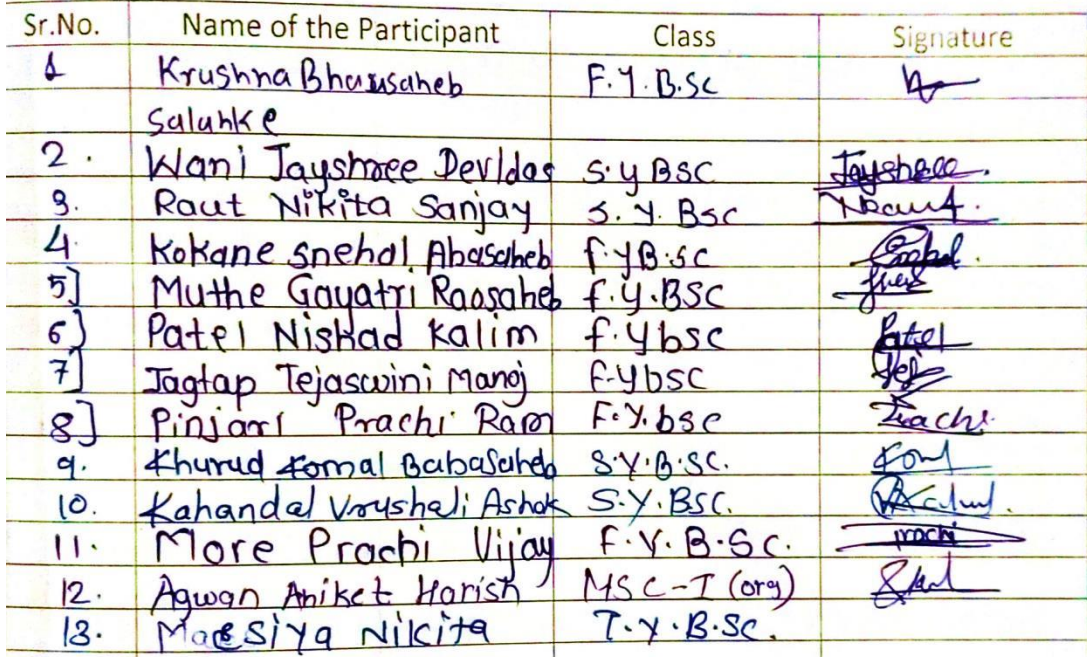 Sr.No. Name of the Participant Class Signature
1 Krushna Bhausaheb F.Y.B.Sc
Salunke
2. Wani Jayshree Devidas S.Y BSC Jayshree.
3. Raut Nikita Sanjay S.Y. BSC NRaut.
4. Kokane Snehal Abasaheb f.YB.SC
5] Muthe Gayatri Raosaheb f.y.BSC
6) Patel Nishad Kalim f.ybsc Patel
7] Jagtap Tejaswini Manoj F.Ybsc Tej
8] Pinjari Prachi Ram F.Y.bsc Prachi
9. Khurud Komal Babasaheb S.Y.B.SC.
10. Kahandal Vrushali Ashok S.Y.BSC.
11. More Prachi Vijay F.Y.B.SC. prachi
12. Agwan Aniket Harish MSC-I (org)
13. Nikita T.Y.B.SC.